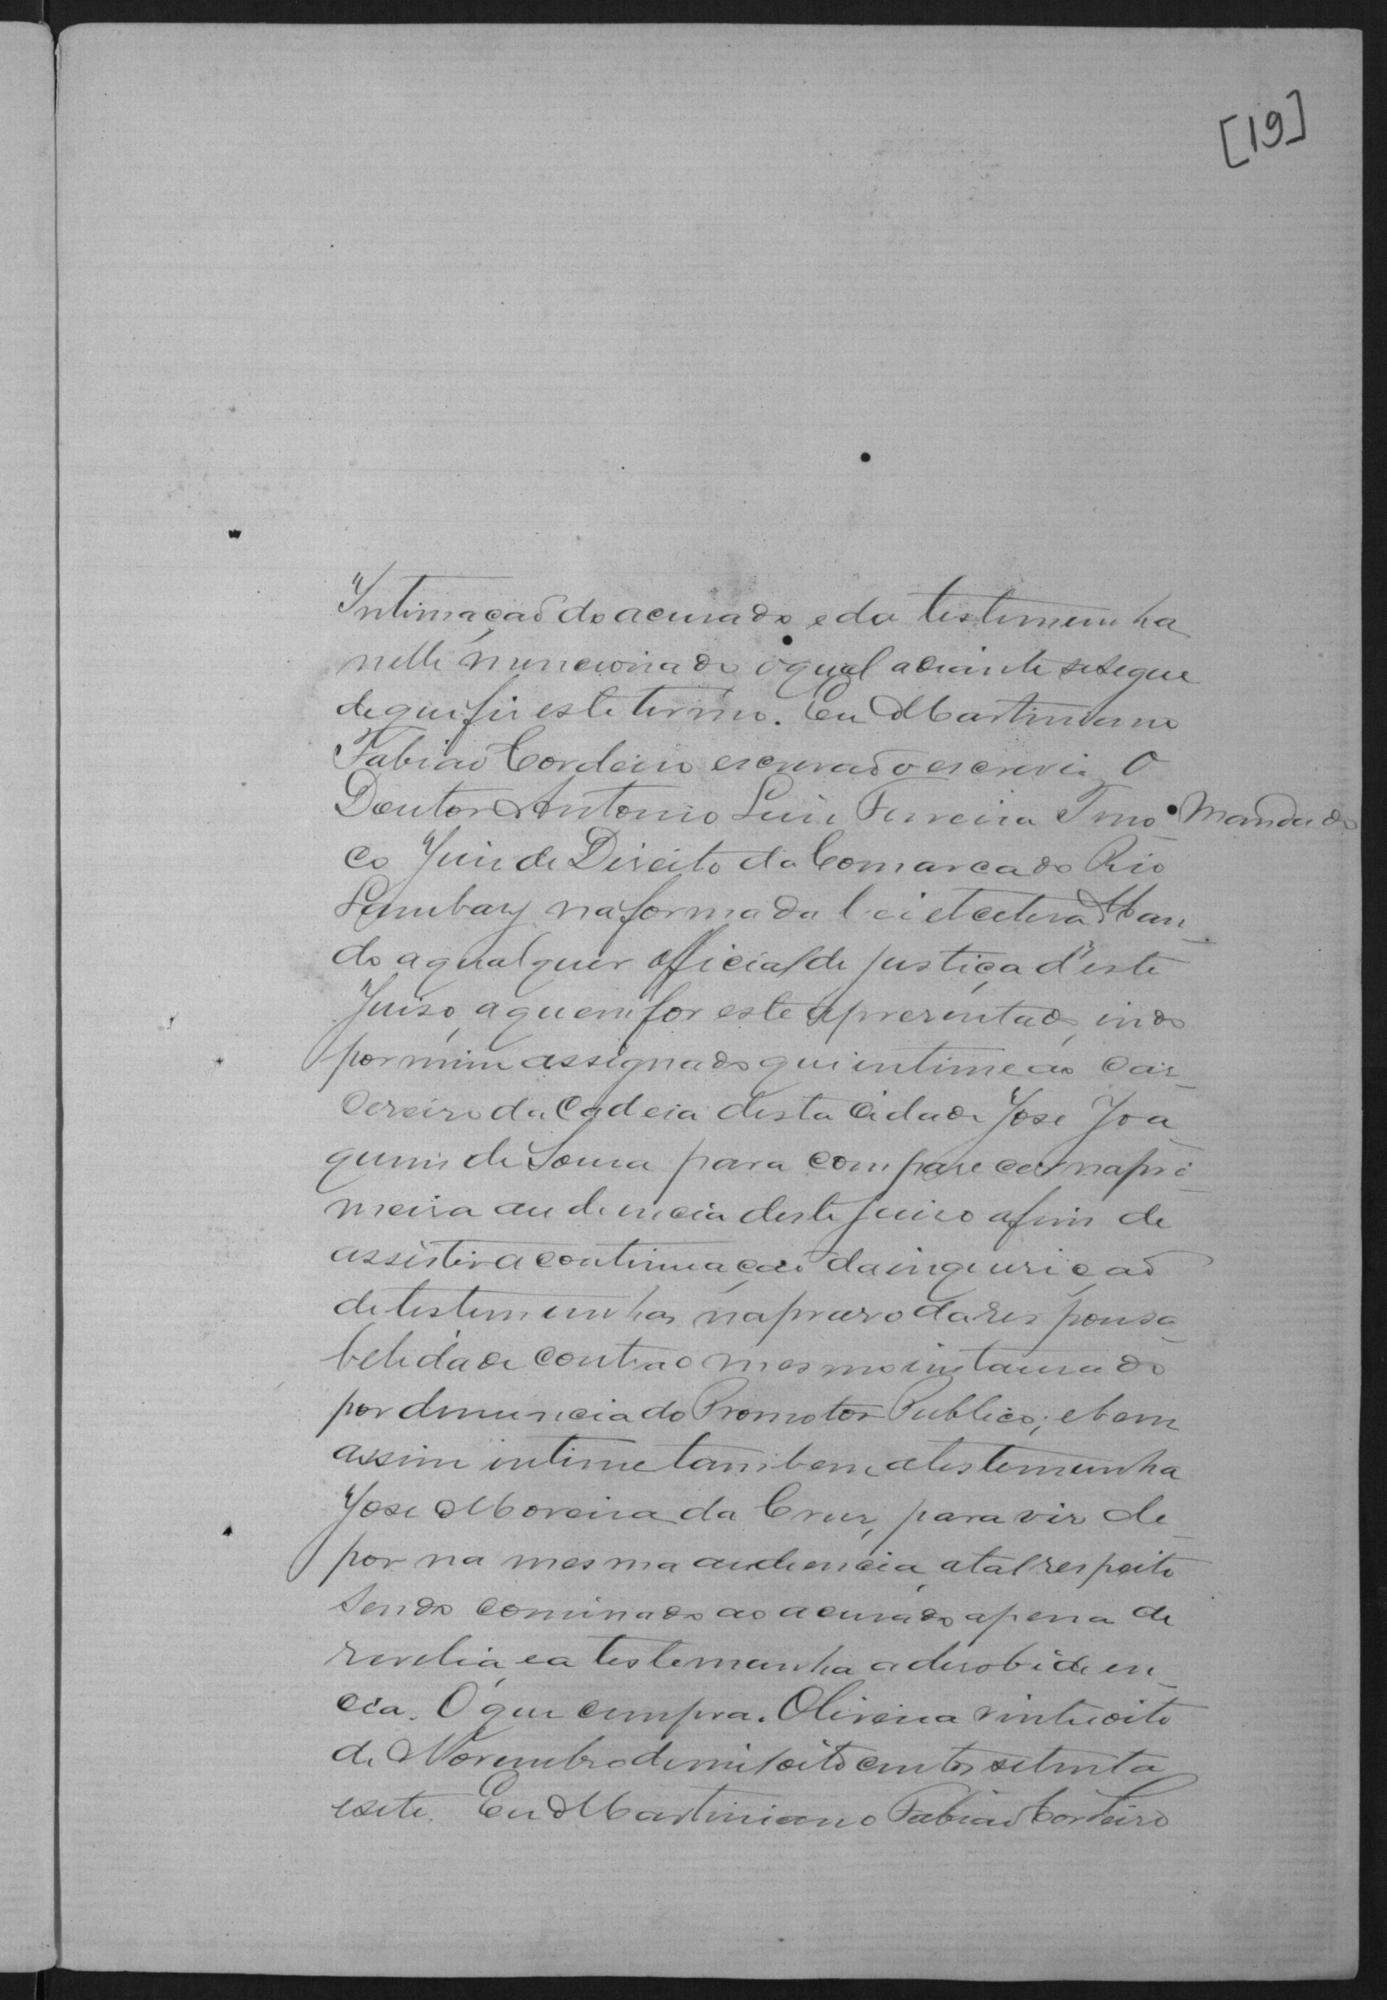 [19]
Intimação do acusado e da testemunha
nelle mencionada o qual adiante se segue
de que fis este termo. Eu Martiniano
Fabião Cordeiro escrivão o escrevi. O
Doutor Antonio Luis Ferreira Tino
Mandado
co Juis de Direito da Comarca do Rio
Lambary na forma da lei etcetera Man-
do a qualquer official de justiça d'este
Juiso, a quem for este apresentado, indo
por mim assignado que intime ao car-
cereiro da Cadeia desta Cidade Jose Joa-
quim de Sousa para comparecer na pri-
meira audiencia deste juiso afim de
assistir a continuação da inquirição
de testemunhas no da responsa-
belidade contra o mesmo instaurado
por denuncia do Promotor Publico; e bem
assim intime tambem a testemunha
Jose Moreira da Crus, para vir de-
por na mesma audiencia, a tal respeito
sendo cominado ao acusado a pena de
revelia, e a testemunha a desobidien-
cia. O que cumpra. Oliveira vinte oito
de Novembro de mil oito centos setenta
e sete. Eu Martiniano Fabião Cordeiro